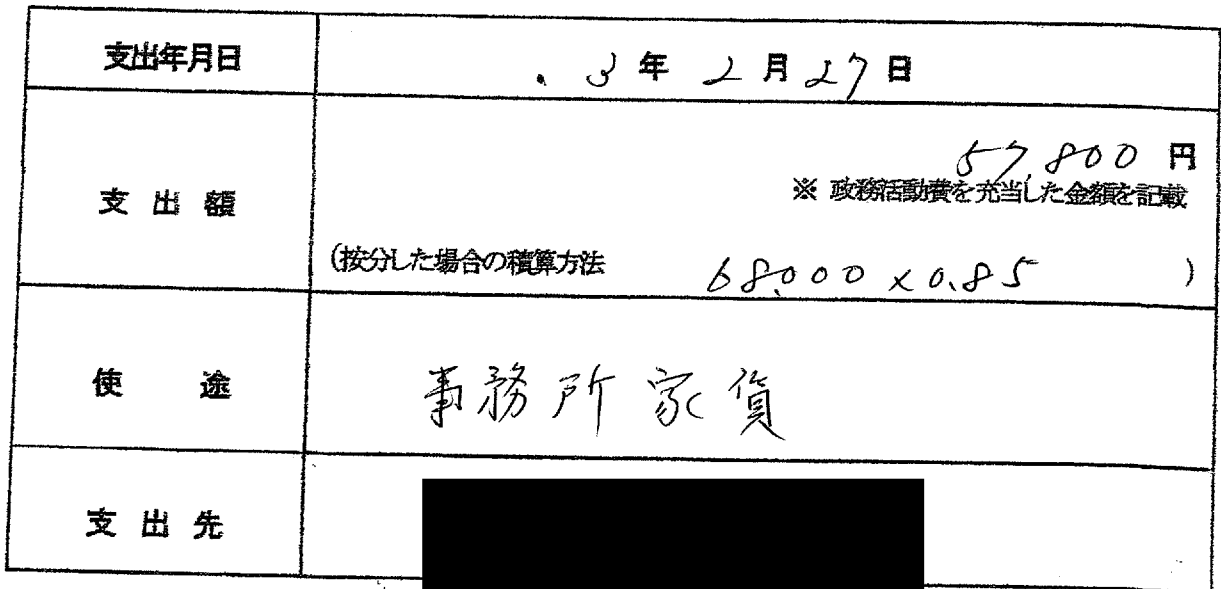 支出年月日
.3年2月27日
支出額
57,800円
※ 政務活動費を充当した金額を記載
(按分した場合の積算方法 68,000×0.85 )
使途
事務所家賃
支出先